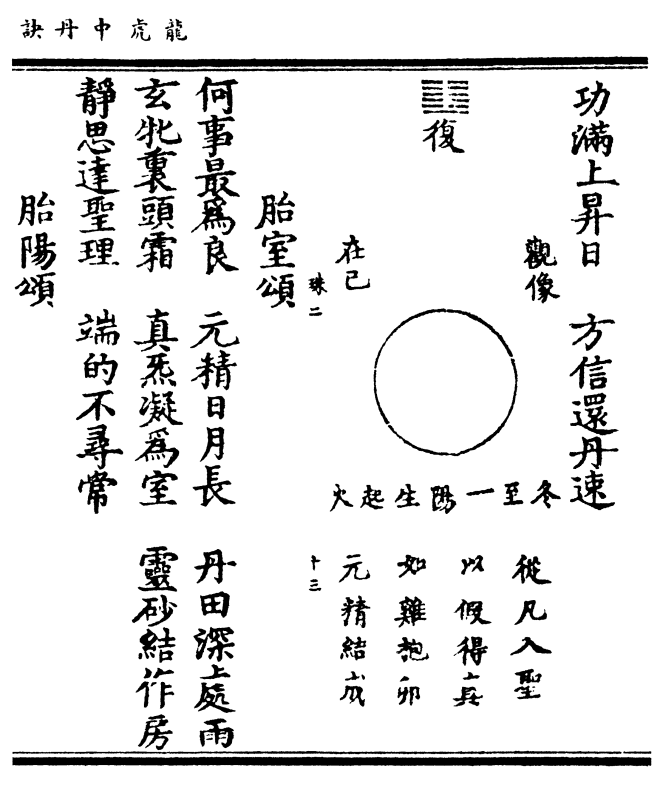 龍虎中丹訣
功滿上昇日　方信還丹速
觀像
復
冬至一陽生起火
從凡入聖
以假得真
如雞抱卵
元精結成
在己
珠二
十三
胎室頌
何事最爲良　元精日月長　丹田深處雨
玄牝裏頭霜　真炁凝爲室　靈砂結作房
靜思達聖理　端的不尋常
胎陽頌